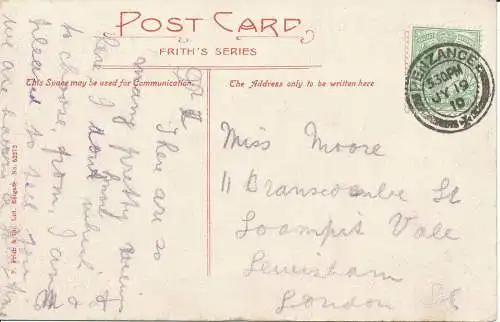 POST CARD
FRITH'S SERIES
This Space may be used for Communication.
The Address only to be written here
PENZANCE
3.30PM
JY 19
10
There are so
many pretty views
here I dont
know which
to choose from, I am
pleased to see you
we are having a fine
Miss Moore
11 Branscombe St
Loampit Vale
Lewisham
London SE
F. Frith & Co. Ltd. Reigate. No. 62273